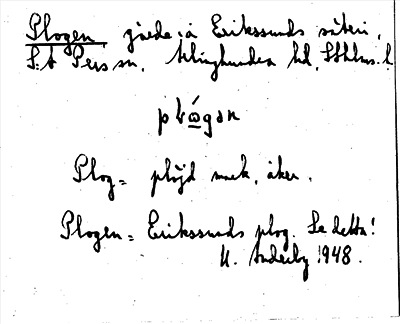 Plogen, gärde å Erikssunds säteri,
S:t Pers sn, Klinghundra hd, Sthlms. l.
Plog = plöjd mark, åker.
Plogen = Erikssunds plog. Se detta!
U. Anderby 1948.